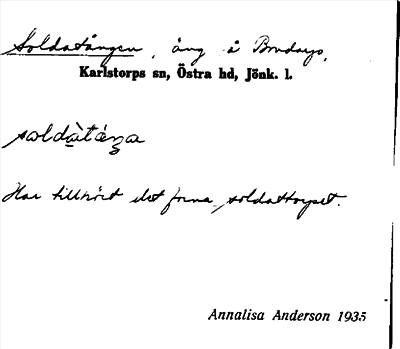 Soldatängen, äng å Brudarp,
Karlstorps sn, Östra hd, Jönk. l.
Har tillhört det forna soldattorpet.
Annalisa Anderson 1935